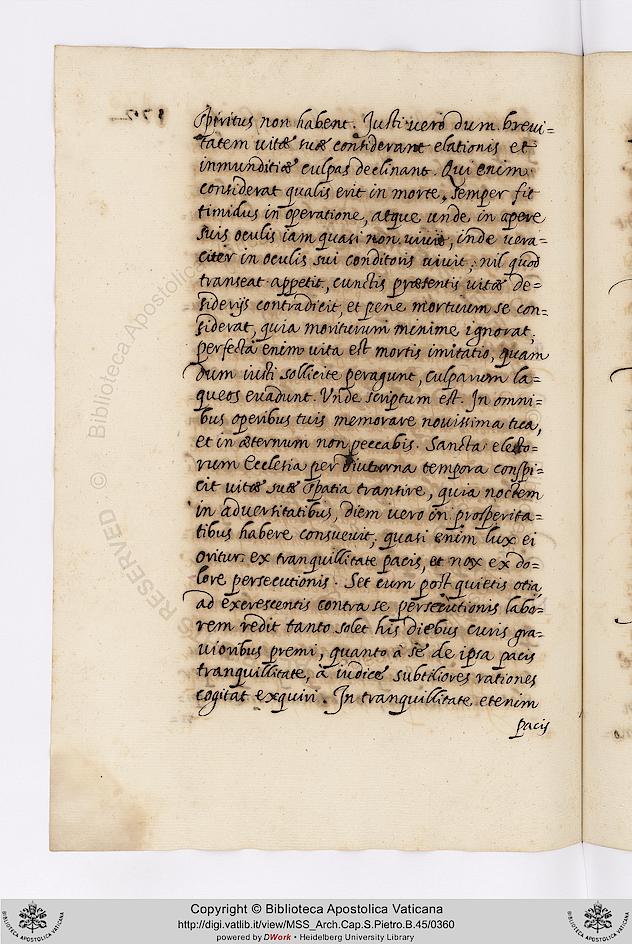 spiritus non habent. Justi vero dum brevi=
tatem vitæ suæ considerant elationis et
inmunditiæ culpas declinant. Qui enim
considerat qualis erit in morte, semper fit
timidus in operatione, atque unde in opere
suis oculis iam quasi non vivit, inde vera=
citer in oculis sui conditoris vivit; nil quod
transeat appetit, cunctis præsentis vitæ de=
siderijs contradicit, et pene mortuum se con=
siderat, quia moriturum minime ignorat.
perfecta enim vita est mortis imitatio, quam
dum iusti sollicite peragunt, culparum la=
queos evadunt. Vnde scriptum est. In omni=
bus operibus tuis memorare novissima tua,
et in æternum non peccabis. Sancta electo=
rum Ecclesia per diuturna tempora conspi=
cit vitæ suæ spatia transire, quia noctem
in adversitatibus, diem vero in prosperita=
tibus habere consuevit, quasi enim lux ei
oritur ex tranquillitate pacis, et nox ex do=
lore persecutionis. Set cum post quietis otia,
ad excrescentis contra se persecutionis labo=
rem redit tanto solet his diebus curis gra=
vioribus premi, quanto à se de ipsa pacis
tranquillitate, a iudice subtiliores rationes
cogitat exquiri. In tranquillitate etenim
pacis
© Biblioteca Apostolica
RESERVED ©
Copyright © Biblioteca Apostolica Vaticana
http://digi.vatlib.it/view/MSS_Arch.Cap.S.Pietro.B.45/0360
powered by DWork • Heidelberg University Library